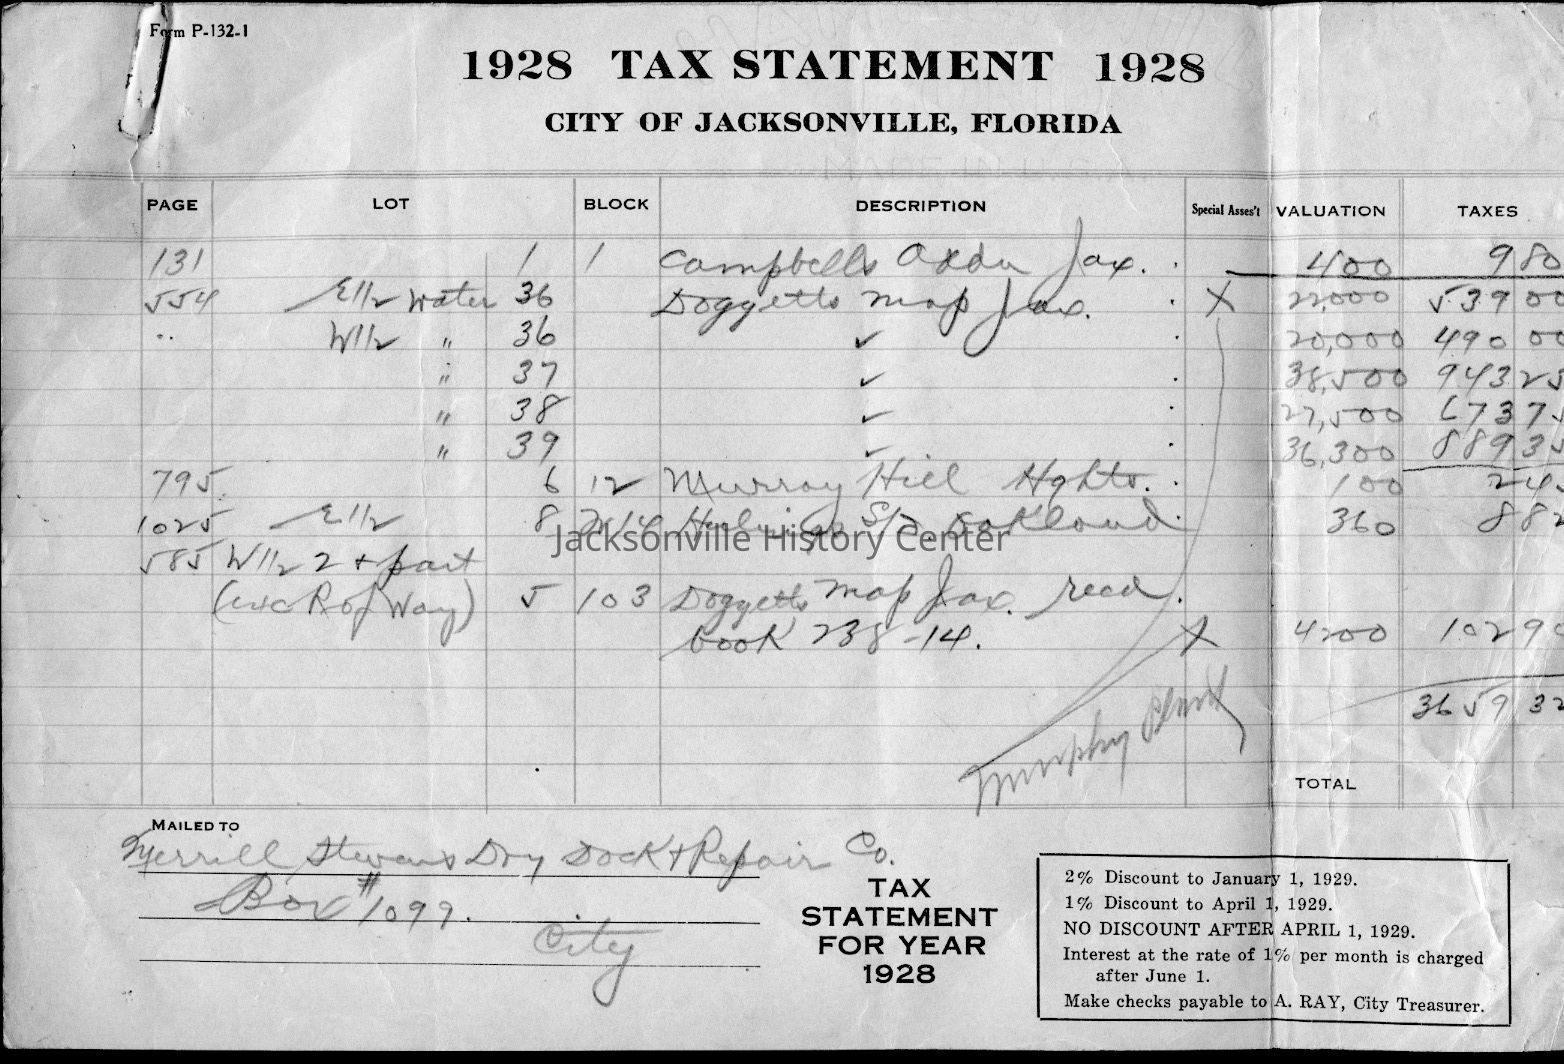 Form P-132-1
1928 TAX STATEMENT 1928
CITY OF JACKSONVILLE, FLORIDA
PAGE LOT BLOCK DESCRIPTION Special Asses't VALUATION TAXES
131 1 1 Campbells Addn Jax. 400 9 80
554 E1/2 water 36 Doggetts map Jax. X 22,000 539 00
" W1/2 " 36 ✓ 20,000 490 00
" 37 ✓ 38,500 943 25
" 38 ✓ 27,500 673 75
" 39 ✓ 36,300 889 35
795 6 12 Murray Hill Hghts. 100 2 45
1025 E1/2 8 S/D Oakland 360 8 82
585 W1/2 2 + part
(exc R of Way) 5 103 Doggetts map Jax. recd
book 238-14. X 4200 102 90
3659 32
Murphy
TOTAL
MAILED TO
Merrill Stevens Dry Dock & Repair Co.
Box # 1099.
City
TAX
STATEMENT
FOR YEAR
1928
2% Discount to January 1, 1929.
1% Discount to April 1, 1929.
NO DISCOUNT AFTER APRIL 1, 1929.
Interest at the rate of 1% per month is charged
after June 1.
Make checks payable to A. RAY, City Treasurer.
Jacksonville History Center